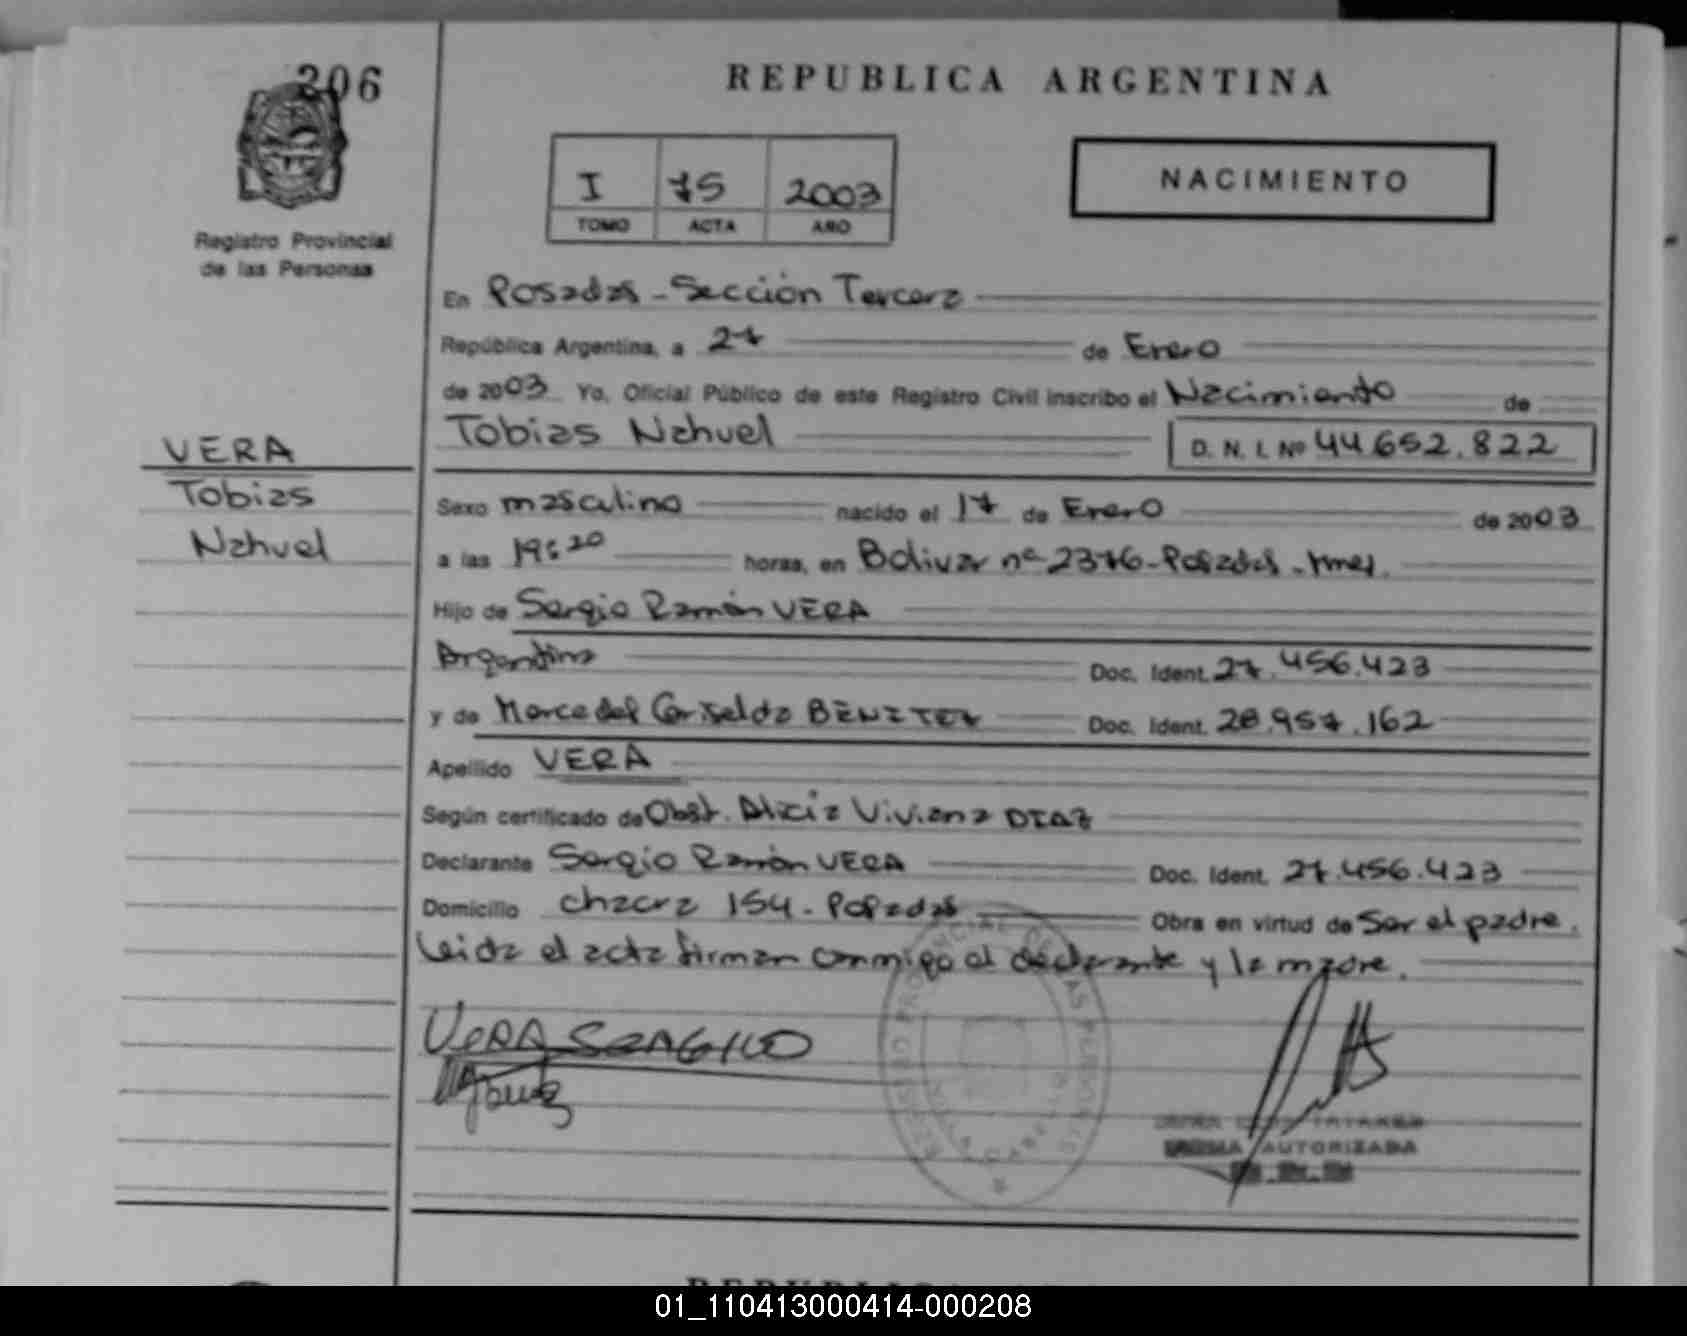 206
REPUBLICA ARGENTINA
I 75 2003
TOMO ACTA AÑO
NACIMIENTO
Registro Provincial
de las Personas
En Posadas - Sección Tercera
República Argentina, a 27 de Enero
de 2003 Yo, Oficial Público de este Registro Civil inscribo el Nacimiento de
Tobias Nahuel D. N. I. Nº 44.652.822
VERA
Tobias
Nahuel
Sexo masculino nacido el 17 de Enero de 2003
a las 19:20 horas, en Bolivar nº 2376 - Posadas - Mnes.
Hijo de Sergio Ramón VERA
Argentina Doc. Ident. 27.456.423
y de Mercedes Griselda BENITEZ Doc. Ident. 28.957.162
Apellido VERA
Según certificado de Obst. Alicia Viviana DIAZ
Declarante Sergio Ramón VERA Doc. Ident. 27.456.423
Domicilio chacra 154 - Posadas Obra en virtud de Ser el padre.
Leida el acta firman conmigo el declarante y la madre.
VERA SERGIO
REGISTRO PROVINCIAL DE LAS PERSONAS
FIRMA AUTORIZADA
01_110413000414-000208